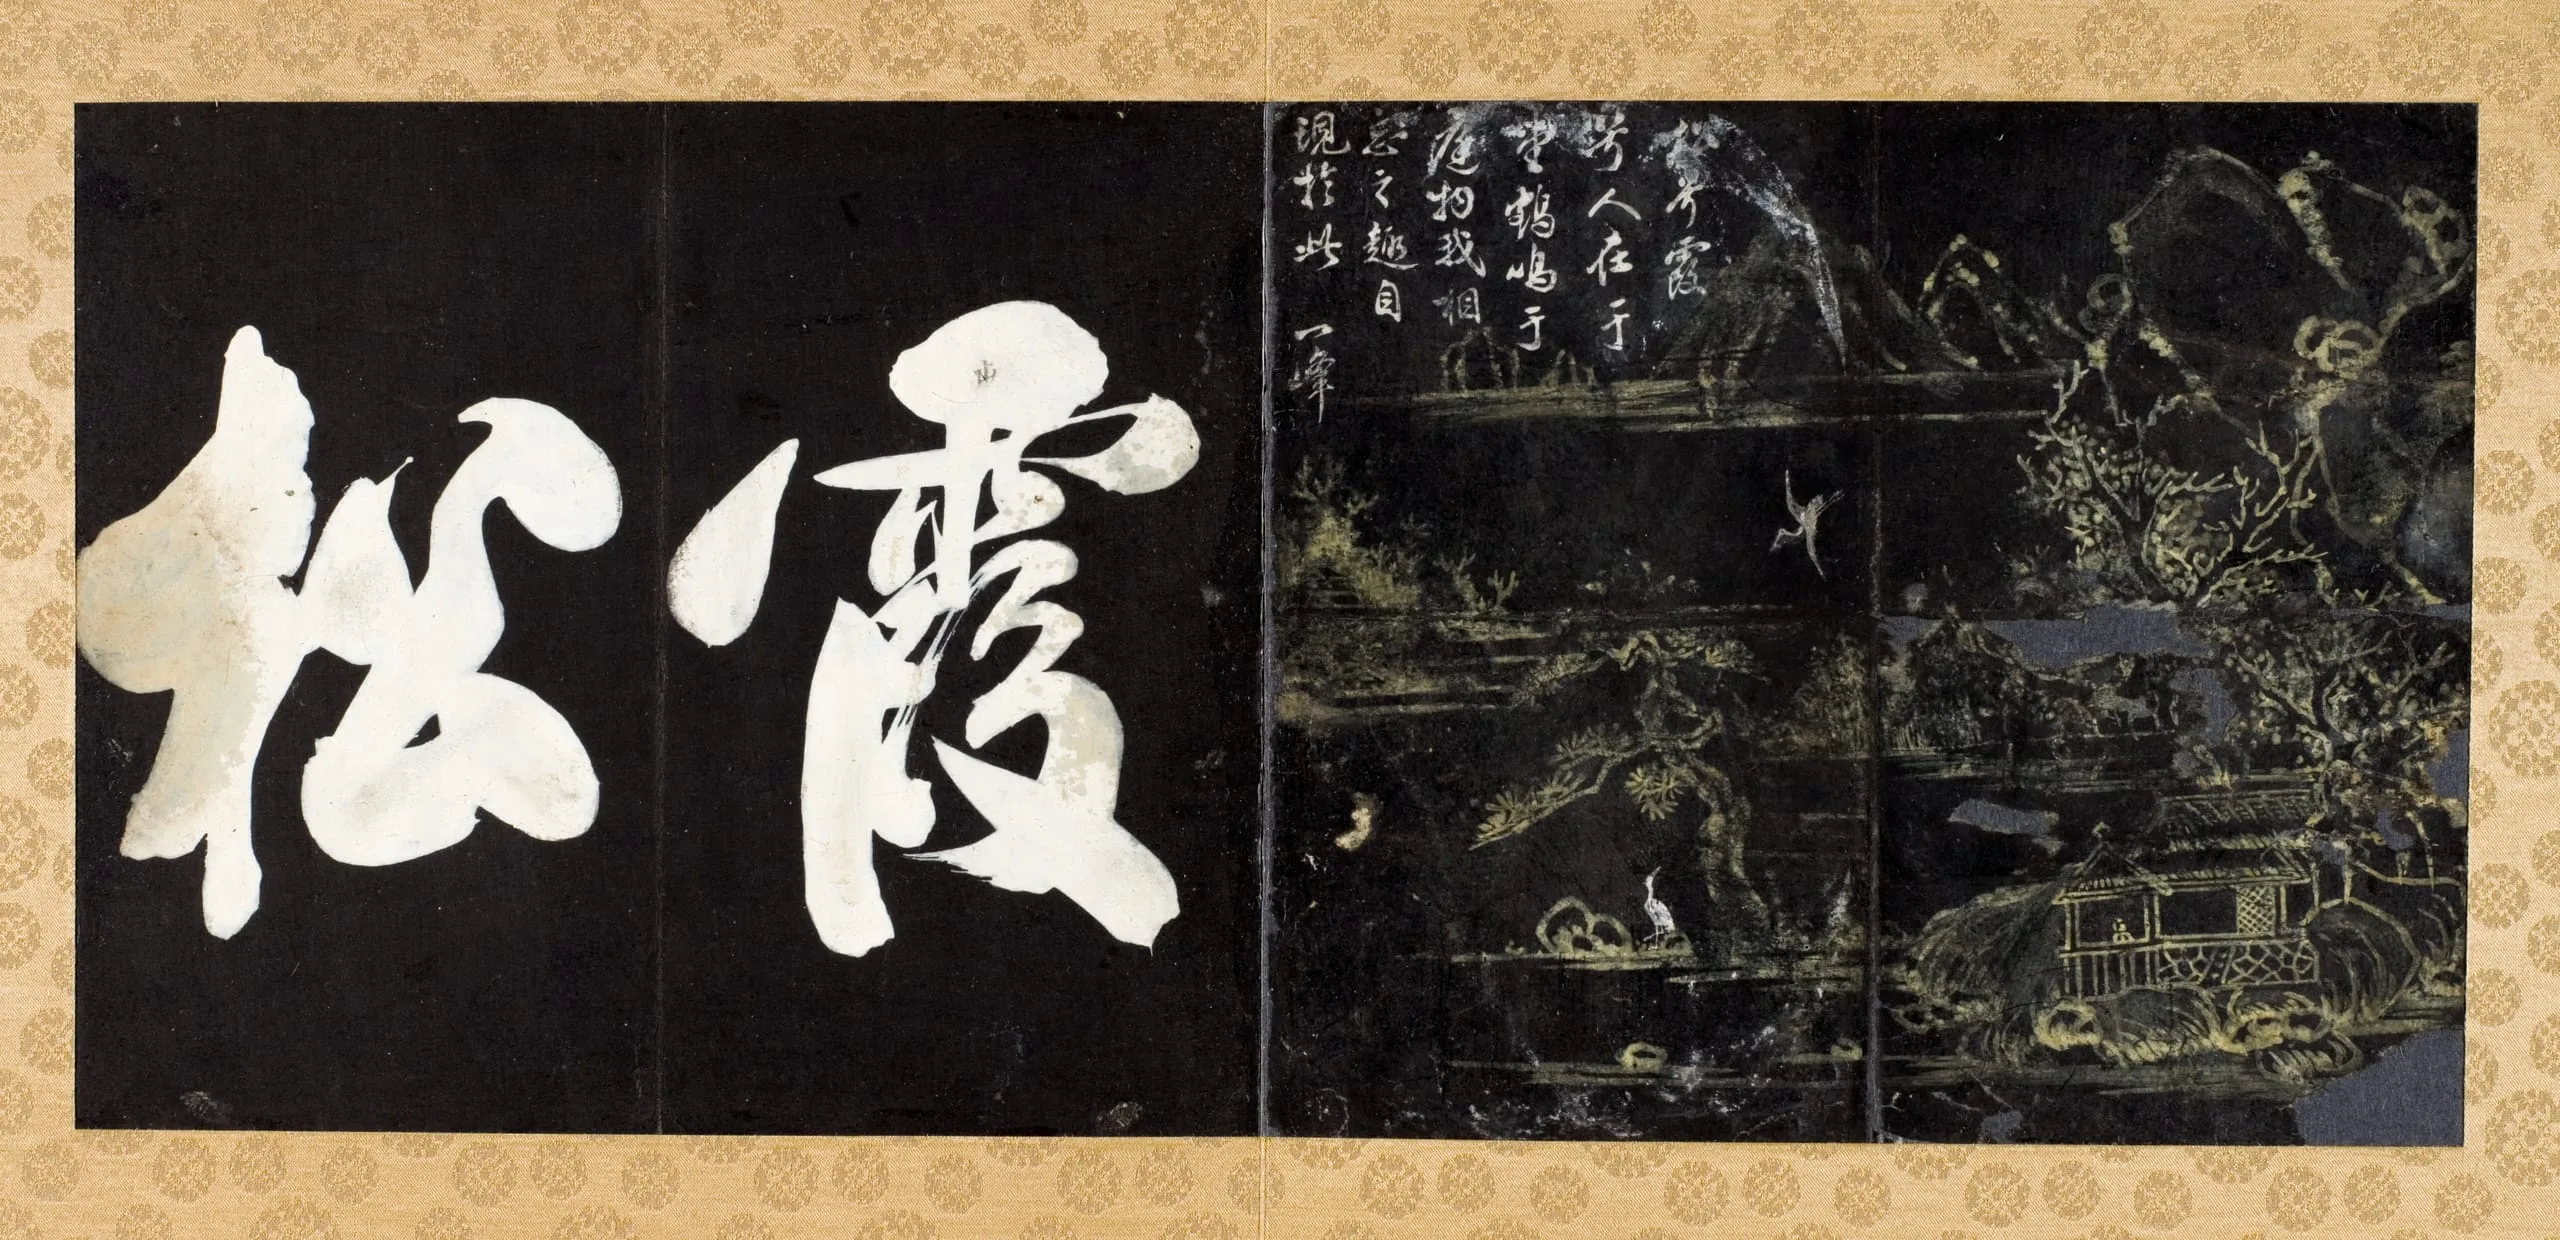 松兮霞
兮人在于
堂鶴鳴于
庭物我相
忘之趣自
現於此 一峰
霞松